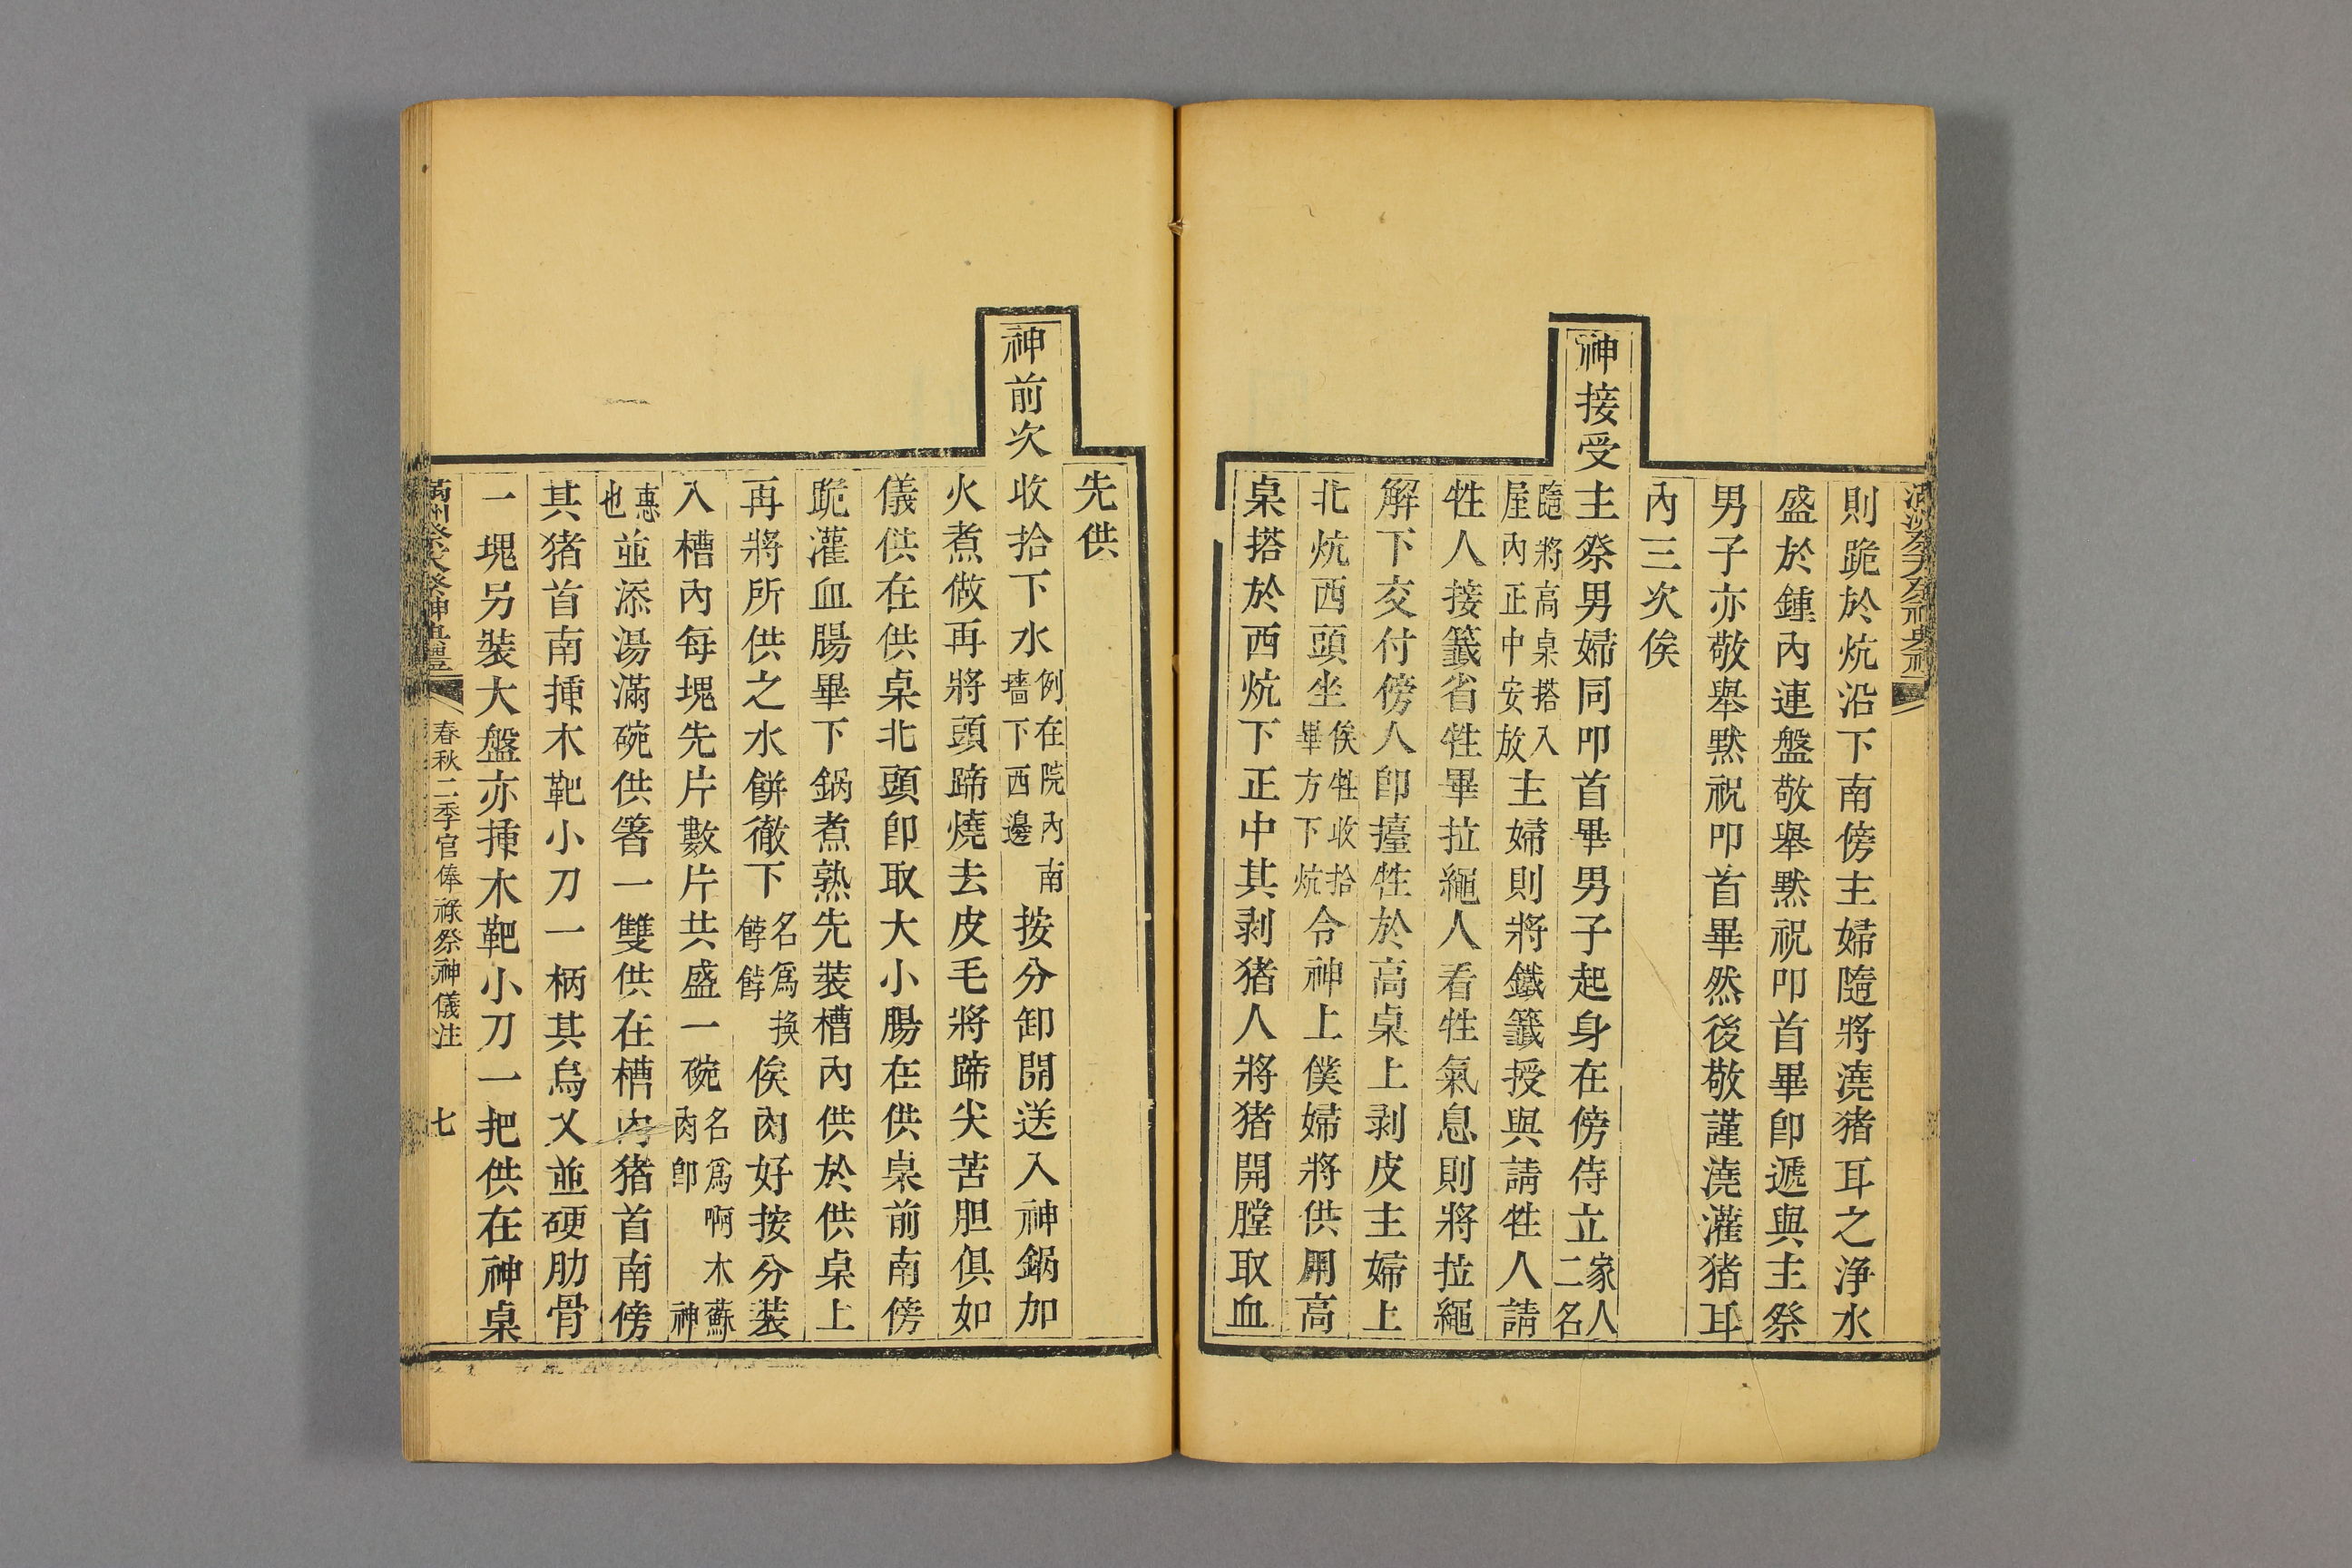 則跪於炕沿下南傍主婦隨將澆猪耳之浄水
盛於鍾內連盤敬舉黙祝叩首畢卽遞與主祭
男子亦敬舉黙祝叩首畢然後敬謹澆灌猪耳
內三次俟
神接受主祭男婦同叩首畢男子起身在傍侍立家人二名
隨將高桌搭入屋內正中安放主婦則將鐵籤授與請牲人請
牲人接籤省牲畢拉繩人看牲氣息則將拉繩
解下交付傍人卽擡牲於高桌上剥皮主婦上
北炕西頭坐俟牲收拾畢方下炕令神上僕婦將供用高
桌搭於西炕下正中其剥猪人將猪開膛取血
先供
神前次收拾下水例在院內南墻下西邊按分卸開送入神鍋加
火煮做再將頭蹄燒去皮毛將蹄尖苦胆俱如
儀供在供桌北頭卽取大小腸在供桌前南傍
跪灌血腸畢下鍋煮熟先裝槽內供於供桌上
再將所供之水餅徹下名爲換餑餑俟肉好按分裝
入槽內每塊先片數片共盛一碗名爲啊木蘇肉卽神
惠也並添湯滿碗供箸一雙供在槽內猪首南傍
其猪首南揷木靶小刀一柄其烏叉並硬肋骨
一塊另裝大盤亦揷木靶小刀一把供在神桌
春秋二季官俸祿祭神儀注
七